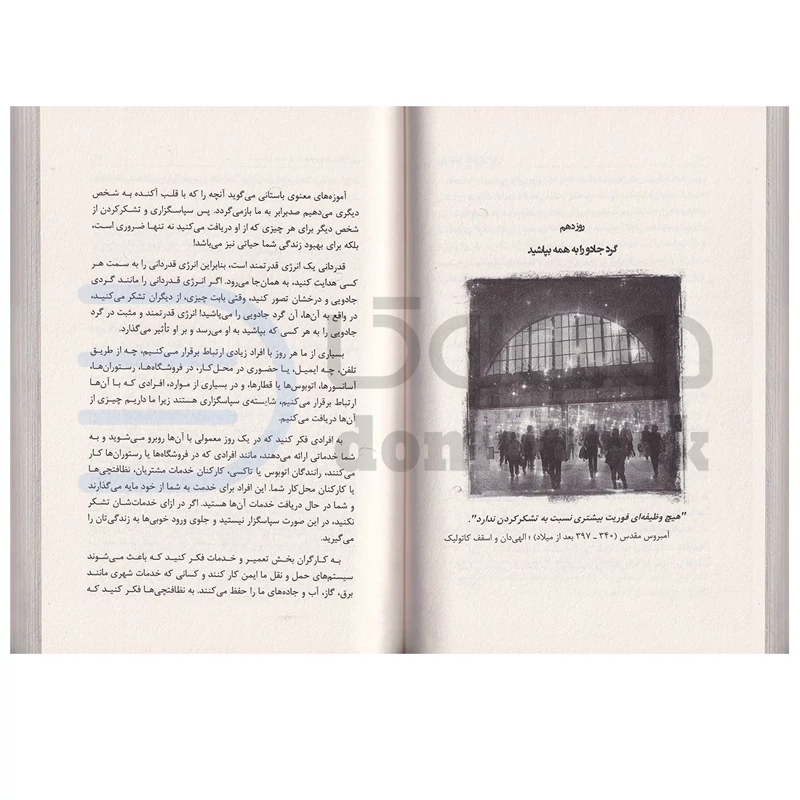 روز دهم
گرد جادو را به همه بپاشید
"هیچ وظیفه‌ای فوریت بیشتری نسبت به تشکر کردن ندارد".
آمبروس مقدس (۳۴۰ ـ ۳۹۷ بعد از میلاد) ؛ الهی‌دان و اسقف کاتولیک
آموزه‌های معنوی باستانی می‌گوید آنچه را که با قلب آکنده به شخص
دیگری می‌دهیم صدبرابر به ما بازمی‌گردد. پس سپاسگزاری و تشکر کردن از
شخص دیگر برای هر چیزی که از او دریافت می‌کنید نه تنها ضروری است،
بلکه برای بهبود زندگی شما حیاتی نیز می‌باشد!
قدردانی یک انرژی قدرتمند است، بنابراین انرژی قدردانی را به سمت هر
کسی هدایت کنید، به همان‌جا می‌رود. اگر انرژی قدردانی را مانند گردی
جادویی و درخشان تصور کنید، وقتی بابت چیزی، از دیگران تشکر می‌کنید،
در واقع به آن‌ها، آن گرد جادویی را می‌پاشید! انرژی قدرتمند و مثبت در گرد
جادویی را به هر کسی که بپاشید به او می‌رسد و بر او تأثیر می‌گذارد.
بسیاری از ما هر روز با افراد زیادی ارتباط برقرار می‌کنیم، چه از طریق
تلفن، چه ایمیل، یا حضوری در محل‌کار، در فروشگاه‌ها، رستوران‌ها،
آسانسورها، اتوبوس‌ها یا قطارها، و در بسیاری از موارد، افرادی که با آن‌ها
ارتباط برقرار می‌کنیم، شایسته‌ی سپاسگزاری هستند زیرا ما داریم چیزی از
آن‌ها دریافت می‌کنیم.
به افرادی فکر کنید که در یک روز معمولی با آن‌ها روبرو می‌شوید و به
شما خدماتی ارائه می‌دهند، مانند افرادی که در فروشگاه‌ها یا رستوران‌ها کار
می‌کنند، رانندگان اتوبوس یا تاکسی، کارکنان خدمات مشتریان، نظافتچی‌ها
یا کارکنان محل‌کار شما. این افراد برای خدمت به شما از خود مایه می‌گذارند
و شما در حال دریافت خدمات آن‌ها هستید. اگر در ازای خدمات‌شان تشکر
نکنید، در این صورت سپاسگزار نیستید و جلوی ورود خوبی‌ها به زندگی‌تان را
می‌گیرید.
به کارگران بخش تعمیر و خدمات فکر کنید که باعث می‌شوند
سیستم‌های حمل و نقل ما ایمن کار کنند و کسانی که خدمات شهری مانند
برق، گاز، آب و جاده‌های ما را حفظ می‌کنند. به نظافتچی‌ها فکر کنید که